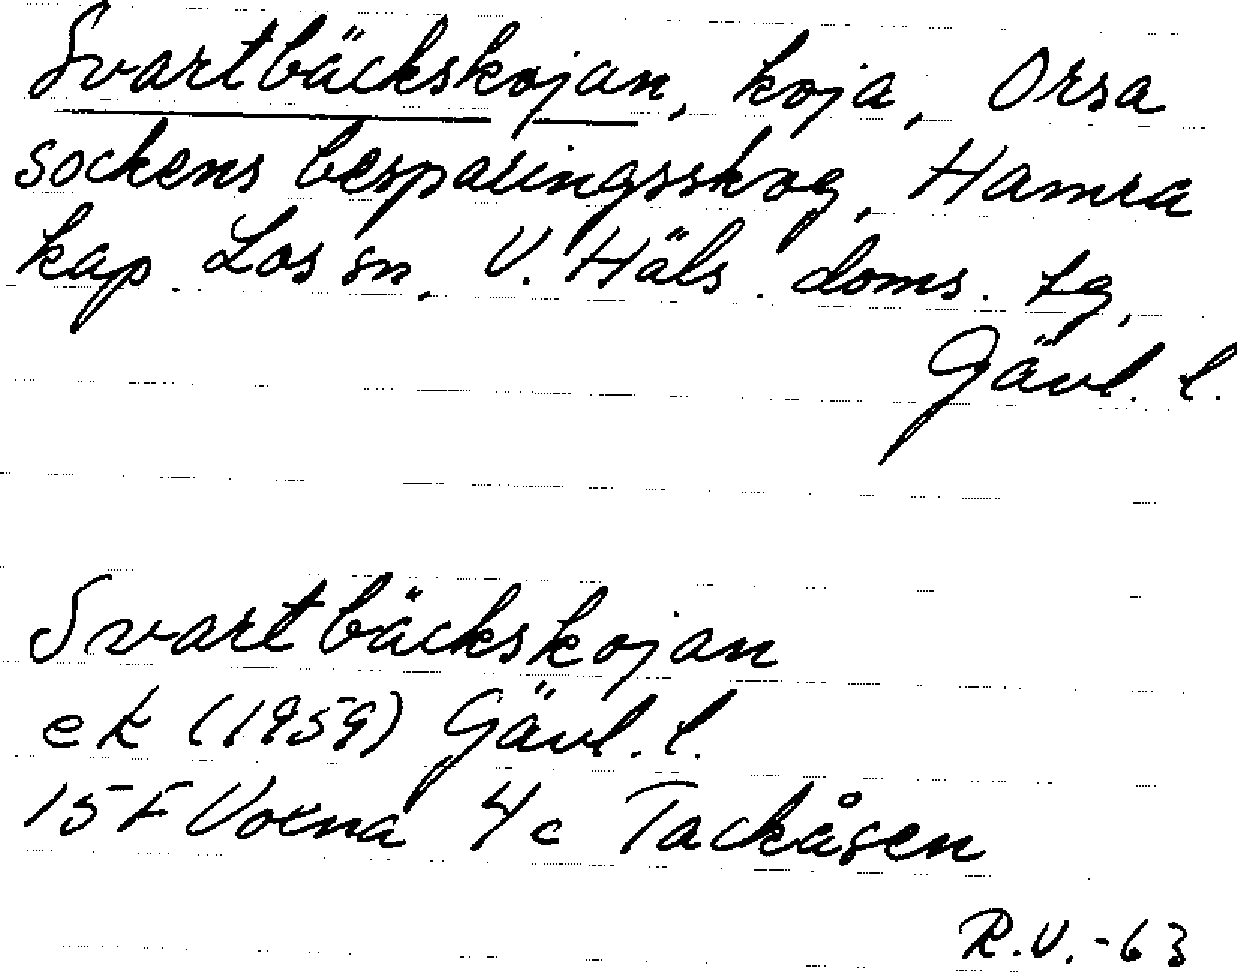 Svartbäckskojan, koja, Orsa
sockens besparingsskog, Hamra
kap. Los sn, V. Häls. doms. tg,
Gävl. l.
Svartbäckskojan
ek (1959) Gävl. l.
15F Voxna 4c Tackåsen
R.V.-63